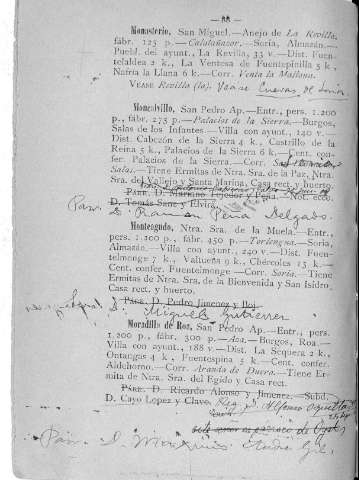 — 88 —
Monasterio, San Miguel.—Anejo de La Revilla,
fábr. 125 p.—Calatañazor.—Soria, Almazán.—
Puebl. del ayunt., La Revilla, 33 v.—Dist. Fuen-
telaldea 2 k., La Ventosa de Fuentepinilla 5 k.,
Nafría la Llana 6 k.—Corr. Venta la Mallona.
VEASE Revilla (la). Vease Cuevas de Soria
Moncalvillo, San Pedro Ap.—Entr., pers. 1.200
p., fábr. 275 p.—Palacios de la Sierra.—Burgos,
Salas de los Infantes.—Villa con ayunt., 140 v.—
Dist. Cabezón de la Sierra 4 k., Castrillo de la
Reina 5 k., Palacios de la Sierra 6 k.—Cent. con-
fer. Palacios de la Sierra.—Corr.
Salas.—Tiene Ermitas de Ntra. Sra. de la Paz, Ntra.
Sra. del Vallejo y Santa Marina, Casa rect. y huerto.
Párr. D. Mariano Tejedor
D. Tomás Sanz y Elvira.
Parr. D. Ramon Peña Delgado.
Monteagudo, Ntra. Sra. de la Muela.—Entr.,
pers. 1.100 p., fábr. 450 p.—Torlengua.—Soria,
Almazán.—Villa con ayunt., 240 v.—Dist. Fuen-
telmonge 7 k., Valtueña 9 k., Chércoles 15 k.—
Cent. confer. Fuentelmonge.—Corr. Soria.—Tiene
Ermitas de Ntra. Sra. de la Bienvenida y San Isidro,
Casa rect. y huerto.
Párr. D. Pedro Jimenez y Boj.
D. Miguel Gutierrez
Moradillo de Roa, San Pedro Ap.—Entr., pers.
1.200 p., fábr. 300 p.—Aza.—Burgos, Roa.—
Villa con ayunt., 188 v.—Dist. La Sequera 2 k.,
Ontangas 4 k., Fuentespina 5 k.—Cent. confer.
Aldehorno.—Corr. Aranda de Duero.—Tiene Er-
mita de Ntra. Sra. del Egido y Casa rect.
Párr. D. Ricardo Alonso y Jimenez. Subd.
D. Cayo Lopez y Clavo.
Parr. D.